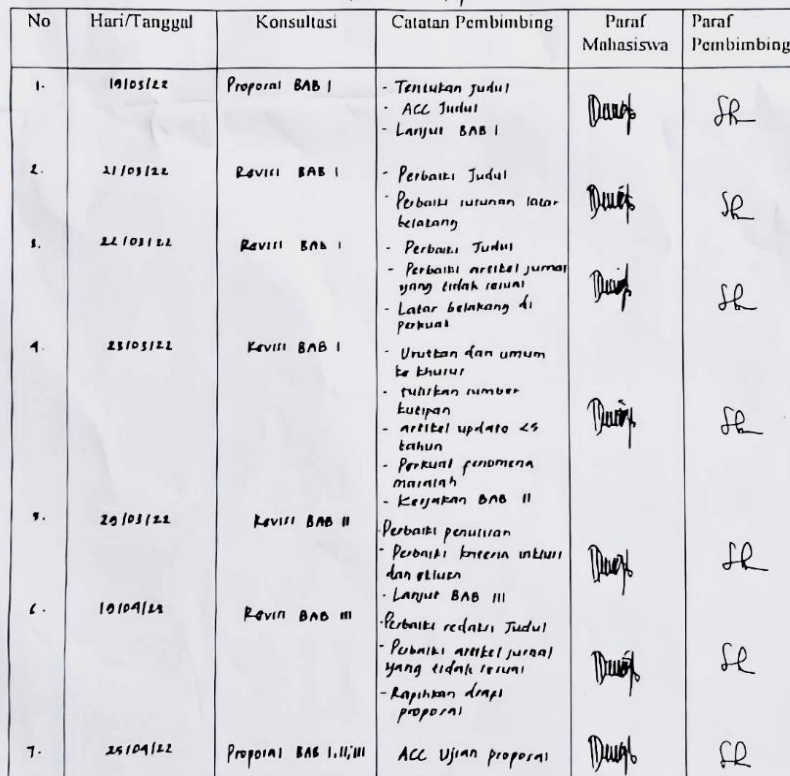 No Hari/Tanggal Konsultasi Catatan Pembimbing Paraf Mahasiswa Paraf Pembimbing
1. 19/03/22 Proposal BAB I - Tentukan Judul
- ACC Judul
- Lanjut BAB I
2. 21/03/22 Revisi BAB I - Perbaiki Judul
- Perbaiki susunan latar
belakang
3. 22/03/22 Revisi BAB I - Perbaiki Judul
- Perbaiki artikel jurnal
yang tidak sesuai
- Latar belakang di
perkuat
4. 23/03/22 Revisi BAB I - Urutkan dan umum
ke khusus
- tuliskan sumber
kutipan
- artikel update <5
tahun
- Perkuat fenomena
masalah
- Kerjakan BAB II
5. 29/03/22 Revisi BAB II Perbaiki penulisan
- Perbaiki kriteria inklusi
dan eklusi
- Lanjut BAB III
6. Revisi BAB III - Perbaiki redaksi Judul
- Perbaiki artikel jurnal
yang tidak sesuai
- Rapihkan
proposal
7. 25/04/22 Proposal BAB I,II,III ACC Ujian proposal